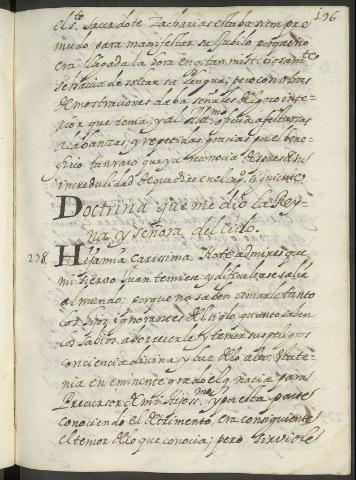 196
el s.to Sacerdote Zacharias estaba siempre
mudo para manifestar su jubilo porque no
era llegada la hora en q tan misteriosam.te
se havia de soltar su lengua; pero con otras
demostraciones daba señales del gozo inte-
rior que tenia, y al Altt.mo ofrecia afectuosas
alabanzas, y repetidas gracias por el bene-
ficio tan raro que ya reconocia despues de su
incredulidad de que dire en el Cap.o siguiente
Doctrina que me dio la Rey-
na y Señora del Cielo.
278. Hija mia Carissima. No te admires que
mi siervo Juan temiese y dificultase salir
al mundo; porque no saben amarle tanto
los hijos ignorantes del siglo, quanto saben
los sabios aborrecerle y temer sus peligros
con ciencia divina, y luz de lo alto. Esta te-
nia en eminente grado el q nacia para
Precursor de mi hijo ss.mo y por esta parte
conociendo el detrimento, era consiguiente
el temor de lo que conocia; pero sirviole